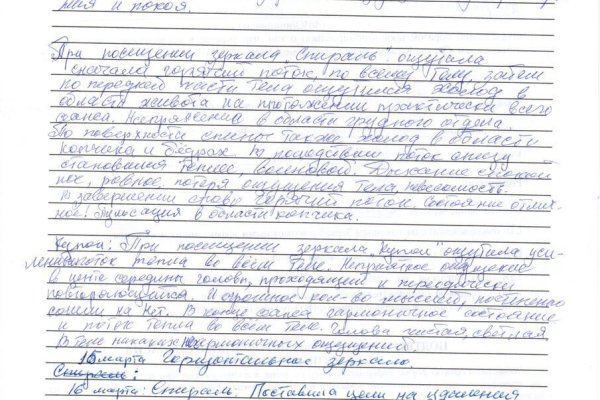 ия и покоя.
При посещении зеркала "Спираль" ощутила
сначала горячий поток, по всему телу, затем
по передней части тела ощущался холод в
области живота на протяжении практически всего
сеанса. Напряжение в области грудного отдела.
По поверхности спины также холод в области
копчика и бёдрах. В последствии поток снизу
становился теплее, волновой. Дыхание спокой
ное, ровное, потеря ощущения тела, невесомость.
В завершении снова горячий поток. Состояние отлич-
ное. Пульсация в области копчика.
Купол: При посещении зеркала "Купол" ощутила уси-
ление поток тепла во всём теле. Неприятное ощущение
в центре середины головы, проходящий и периодически
повторяющийся. И огромное кол-во мыслей, постепенно
сошли на нет. В конце сеанса гармоничное состояние
и поток тепла во всём теле. Голова чистая, светлая,
в теле никаких негармоничных ощущений.
15 марта Горизонтальное зеркало.
Спираль:
16 марта: Спираль. Поставила цели на удаления